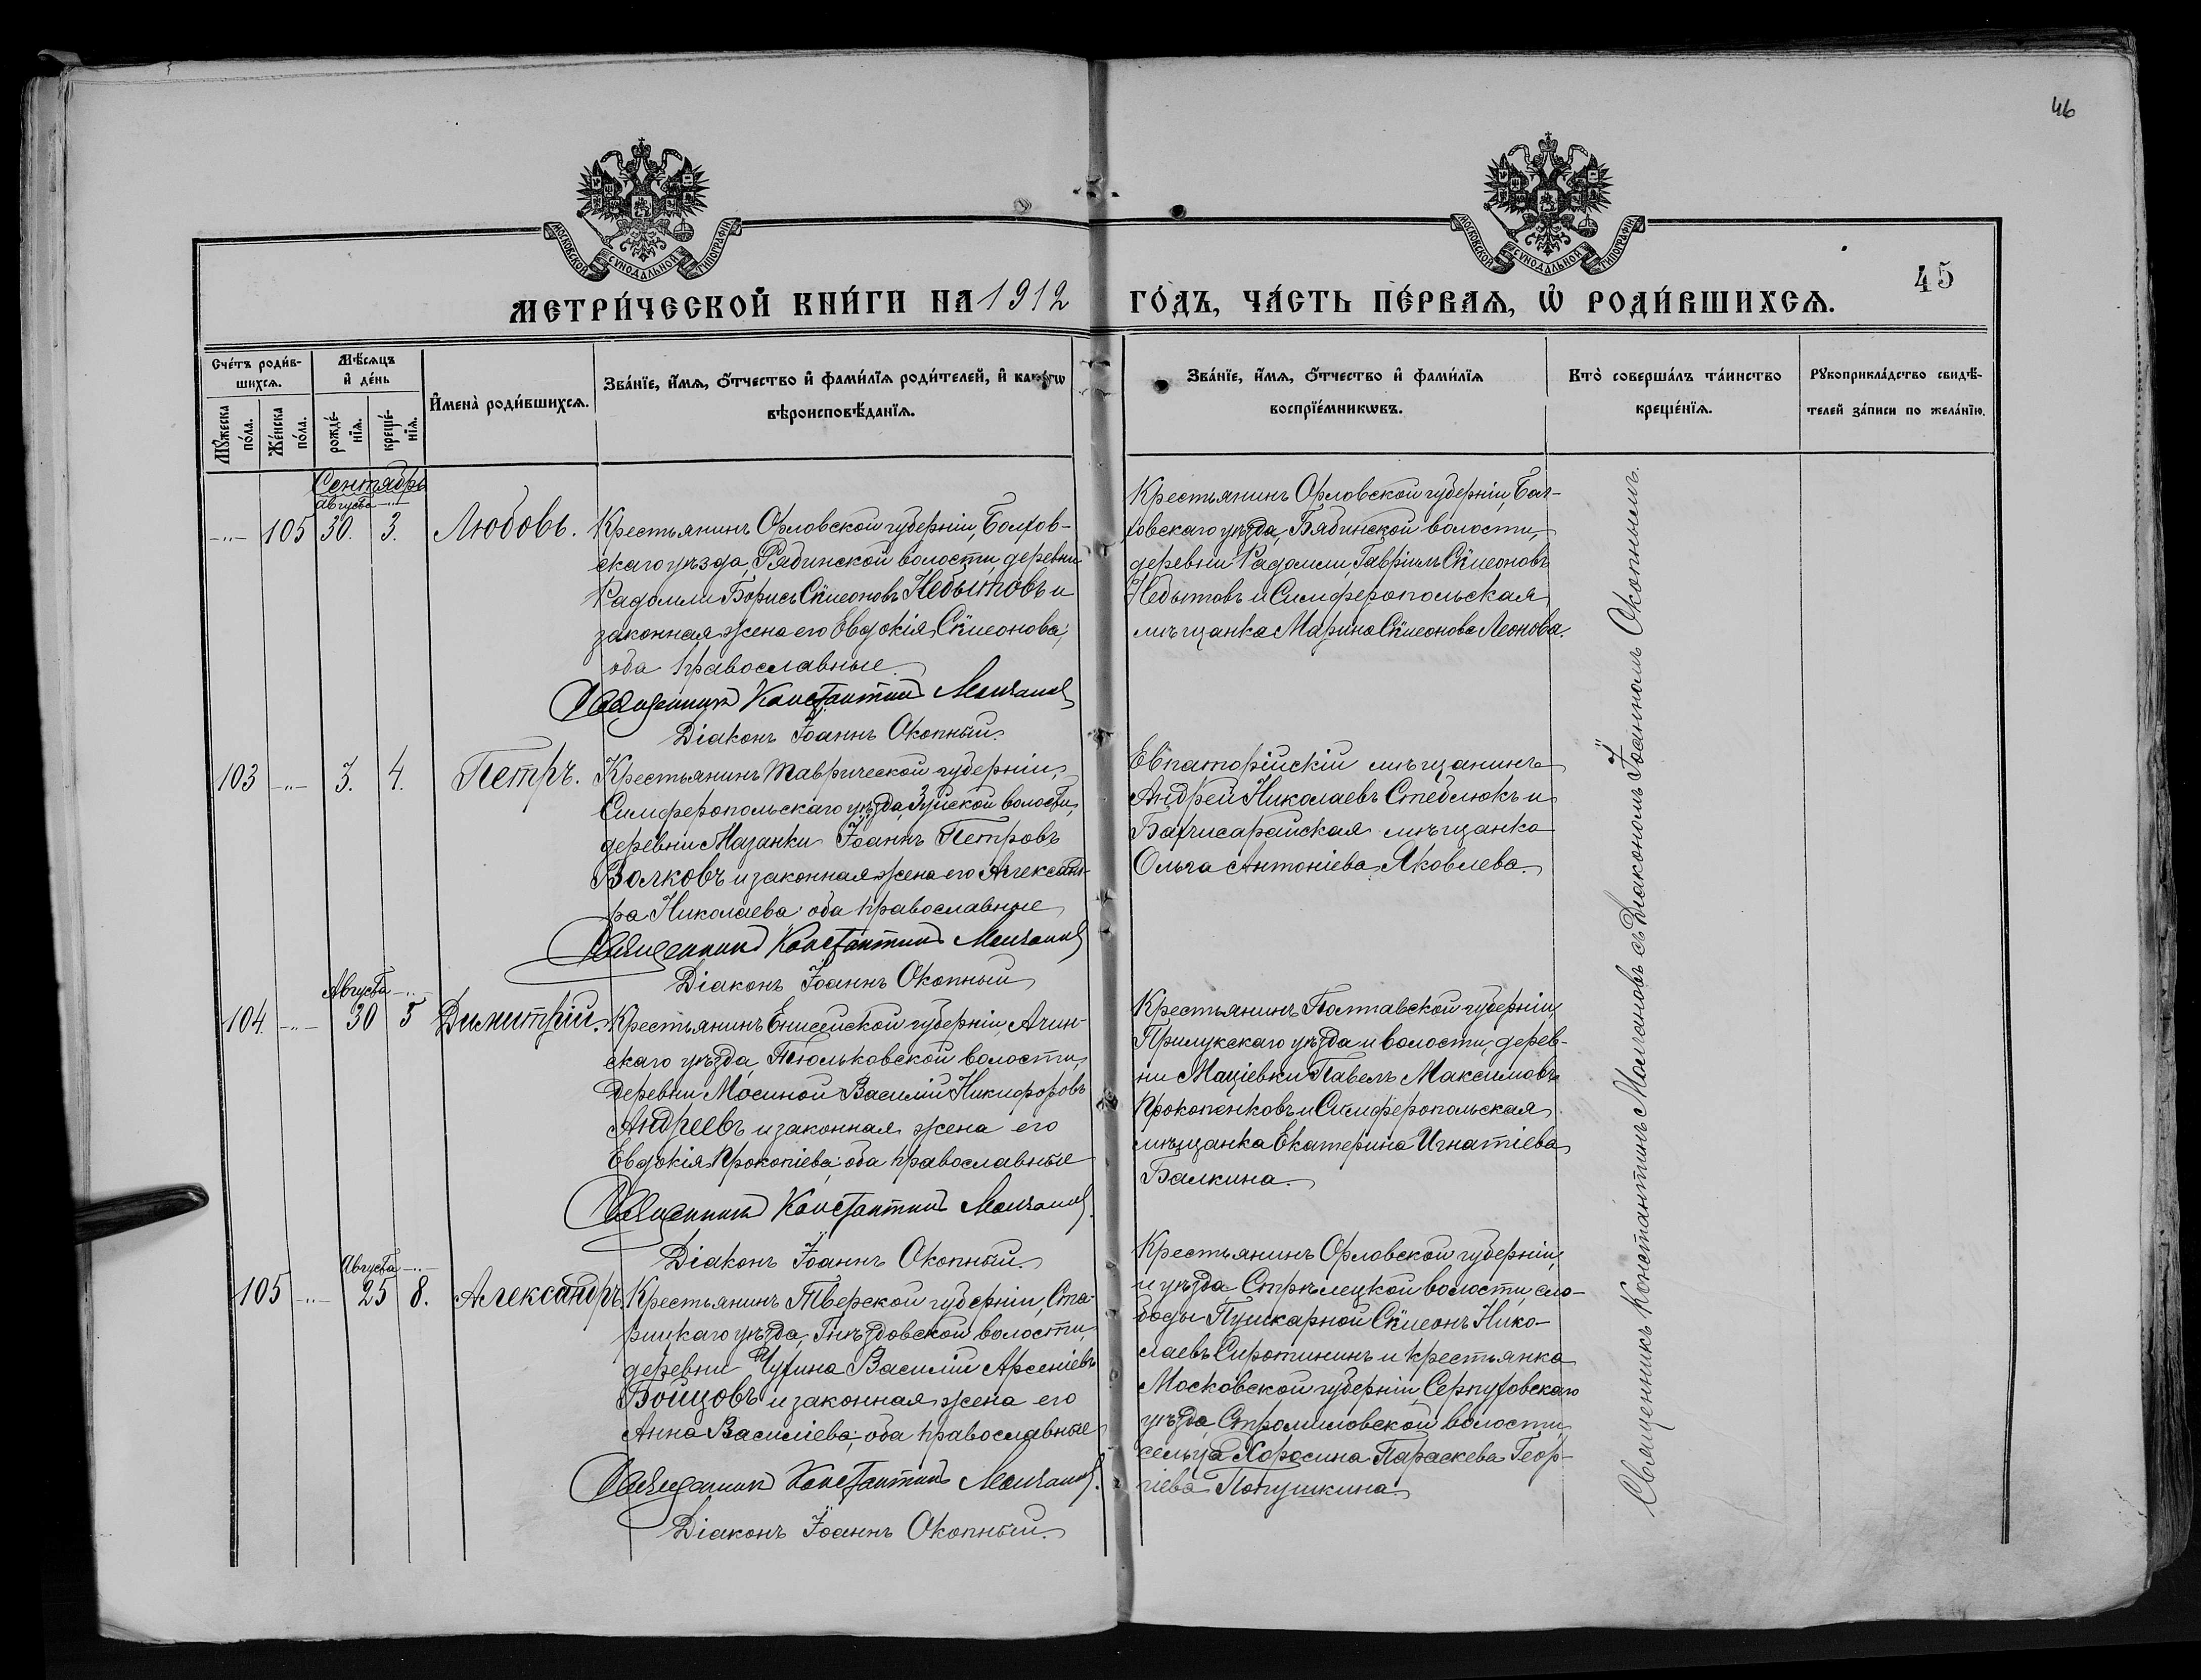 46
МОСКОВСКОЙ СѴНОДАЛЬНОЙ ТИПОГРАФІИ
МОСКОВСКОЙ СѴНОДАЛЬНОЙ ТИПОГРАФІИ
45
МЕТРИ́ЧЕСКОЙ КНИ́ГИ НА 1912 ГО́ДЪ, ЧА́СТЬ ПЕ́РВАѦ, Ѡ҆ РОДИ́ВШИХСѦ.
Сче́тъ роди́в-
шихсѧ.
Мѣ́сѧцъ
и҆ де́нь
Мꙋ́жеска
по́ла.
Же́нска
по́ла.
рожде́-
нїѧ.
креще́-
нїѧ.
И҆мена̀ роди́вшихсѧ.
Зва́нїе, и҆́мѧ, ѻ҆́тчество и҆ фами́лїѧ роди́телей, и҆ како́гѡ
вѣроисповѣ́данїѧ.
Зва́нїе, и҆́мѧ, ѻ҆́тчество и҆ фами́лїѧ
воспрїе́мникѡвъ.
Кто̀ соверша́лъ та́инство
креще́нїѧ.
Рꙋкоприкла́дство свидѣ́-
телей за́писи по жела́нїю.
Сентябрь
Августа
105 30. 3. Любовь.
Крестьянинъ Орловской губерніи, Болхов-
скаго уѣзда, Рядинской волости, деревни
Радомли Борисъ Сѵмеоновъ Небытовъ и
законная жена его Евдокія Сѵмеонова;
оба православные
Священникъ Константинъ Молчановъ
Діаконъ Іоаннъ Окопный.
Крестьянинъ Орловской губерніи, Бол-
ховскаго уѣзда, Бябинской волости,
деревни Радомли, Гавріилъ Сѵмеоновъ
Небытовъ и Симферопольская
мѣщанка Марина Сѵмеонова Леонова.
103 3. 4. Петръ.
Крестьянинъ Таврической губерніи,
Симферопольскаго уѣзда, Зуйской волости,
деревни Мазанки Іоаннъ Петровъ
Волковъ и законная жена его Александ-
ра Николаева; оба православные
Священникъ Константинъ Молчановъ
Діаконъ Іоаннъ Окопный
Евпаторійскій мѣщанинъ
Андрей Николаевъ Стеблюкъ и
Бахчисарайская мѣщанка
Ольга Антоніева Яковлева.
Августа
104 30 5 Димитрій.
Крестьянинъ Енисейской губерніи, Ачин-
скаго уѣзда, Тюльковской волости,
деревни Мосиной Василій Никифоровъ
Андреевъ и законная жена его
Евдокія Прокопіева; оба православные
Священникъ Константинъ Молчановъ.
Діаконъ Іоаннъ Окопный.
Крестьянинъ Полтавской губерніи,
Прилукскаго уѣзда и волости, дерев-
ни Маціевки Павелъ Максимовъ
Прокопенковъ и Симферопольская
мѣщанка Екатерина Игнатіева
Балкина.
Августа
105 25 8. Александръ.
Крестьянинъ Тверской губерніи, Ста-
рицкаго уѣзда, Гнѣздовской волости,
деревни Чухина Василій Арсеніевъ
Бойцовъ и законная жена его
Анна Василіева; оба православные
Священникъ Константинъ Молчановъ.
Діаконъ Іоаннъ Окопный.
Крестьянинъ Орловской губерніи
и уѣзда, Стрѣлецкой волости, сло-
боды Пушкарной Сѵмеонъ Нико-
лаевъ Сиротининъ и крестьянка
Московской губерніи, Серпуховскаго
уѣзда, Стромиловской волости,
сельца Хоросина Параскева Геор-
гіева Попушкина.
Священникъ Константинъ Молчановъ съ Діакономъ Іоанномъ Окопнымъ.